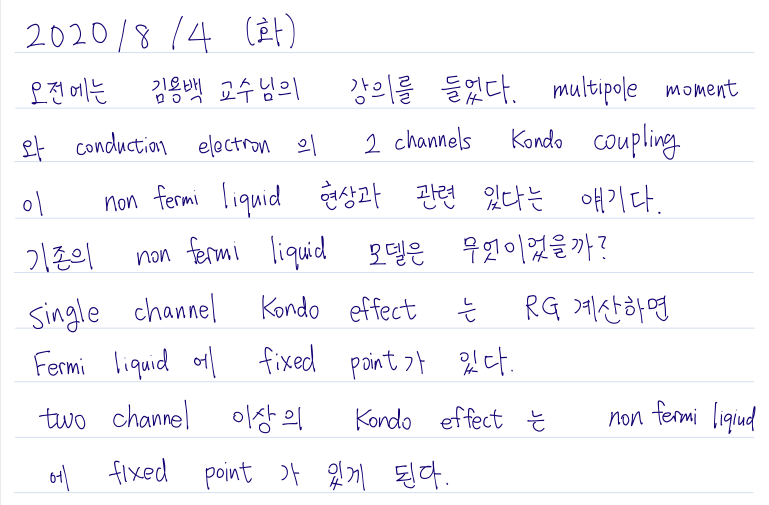 2020/8/4 (화)
오전에는 김용백 교수님의 강의를 들었다. multipole moment
와 conduction electron 의 2 channels Kondo coupling
이 non fermi liquid 현상과 관련 있다는 얘기다.
기존의 non fermi liquid 모델은 무엇이었을까?
single channel Kondo effect 는 RG 계산하면
Fermi liquid 에 fixed point가 있다.
two channel 이상의 Kondo effect 는 non fermi liqiud
에 fixed point 가 있게 된다.